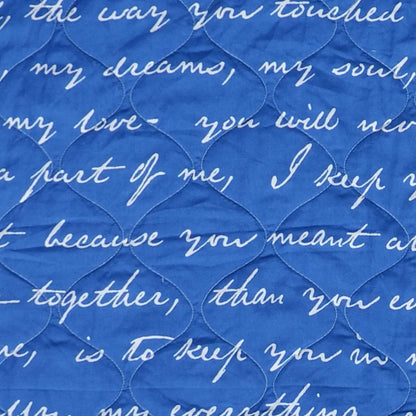 the way you touched
, my dreams, my soul,
my love- you will nev
a part of me, I keep y
t because you meant a
together, than you e
e, is to keep you in
my everything